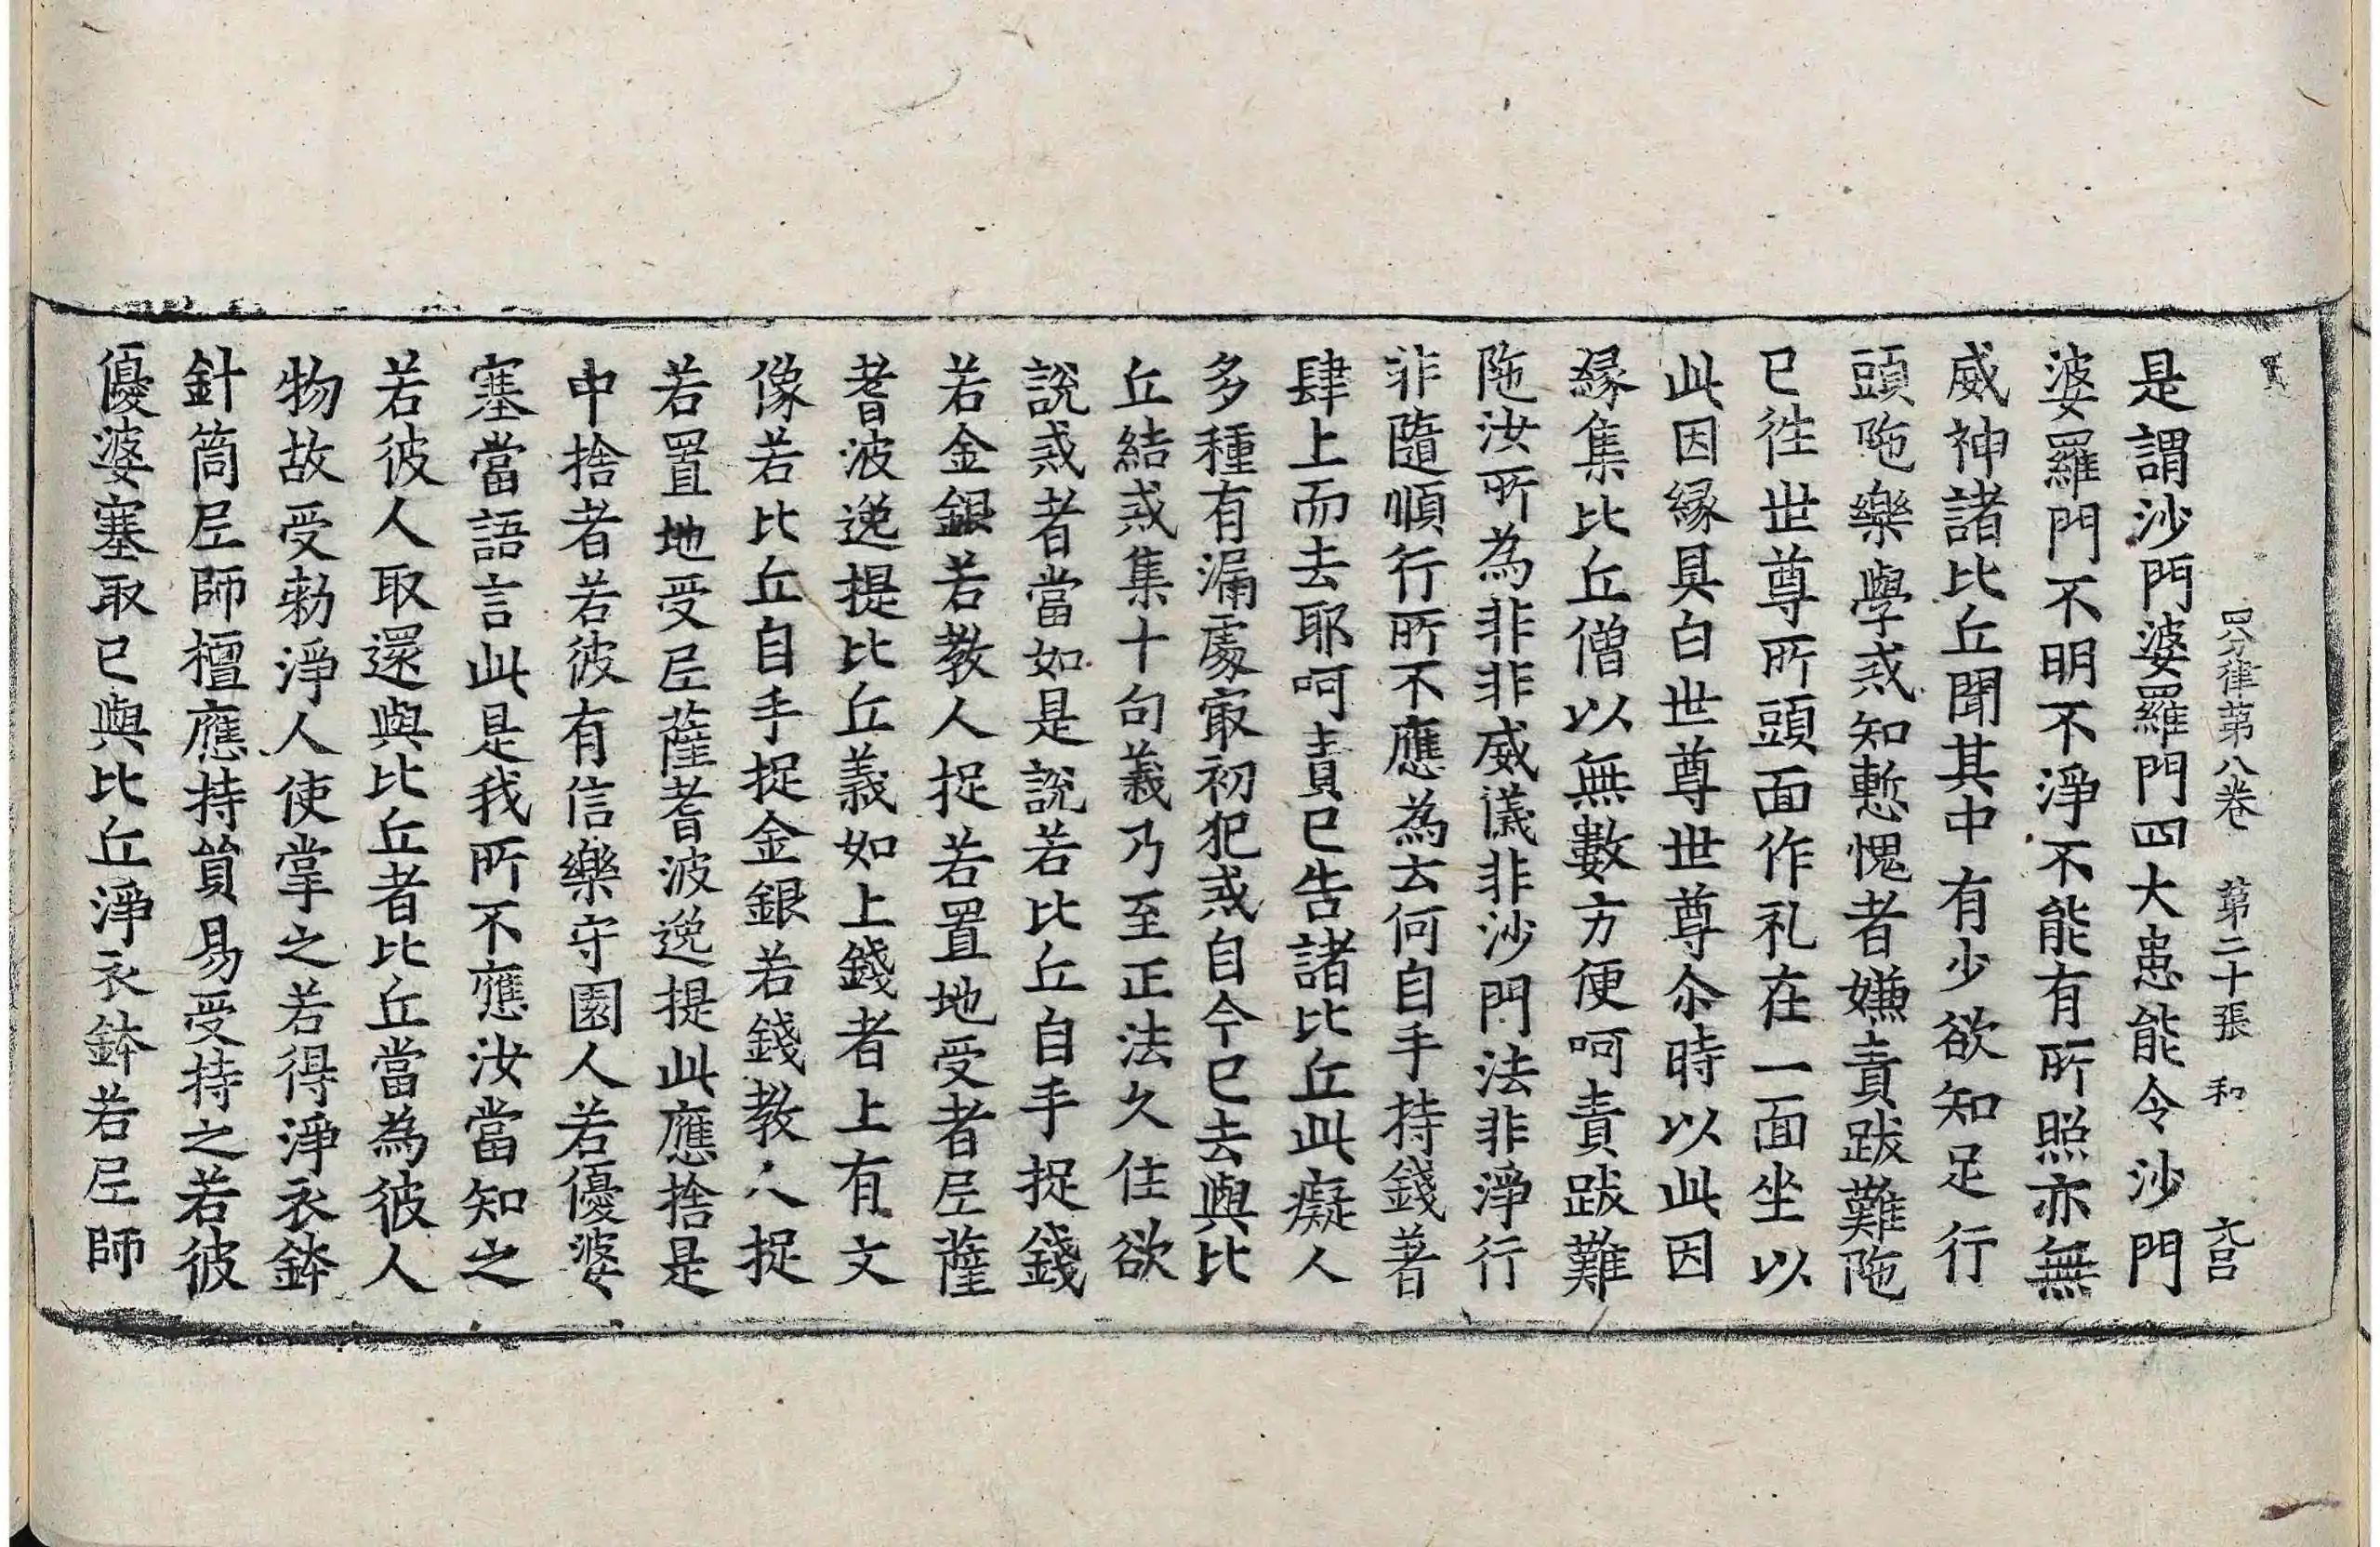 四分律第八卷 第二十張 和
是謂沙門婆羅門四大患能令沙門
婆羅門不明不淨不能有所照亦無
威神諸比丘聞其中有少欲知足行
頭陁樂學戒知慙愧者嫌責跋難陁
已徃世尊所頭面作礼在一面坐以
此因緣具白世尊世尊尒時以此因
緣集比丘僧以無數方便呵責跋難
陁汝所為非非威儀非沙門法非淨行
非隨順行所不應為云何自手持錢著
肆上而去耶呵責已告諸比丘此癡人
多種有漏處冣初犯戒自今已去與比
丘結戒集十句義乃至正法久住欲
說戒者當如是說若比丘自手捉錢
若金銀若教人捉若置地受者尼薩
耆波逸提比丘義如上錢者上有文
像若比丘自手捉金銀若錢教人捉
若置地受尼薩耆波逸提此應捨是
中捨者若彼有信樂守園人若優婆
塞當語言此是我所不應汝當知之
若彼人取還與比丘者比丘當為彼人
物故受勑淨人使掌之若得淨衣鉢
針筒尼師檀應持貿易受持之若彼
優婆塞取已與比丘淨衣鉢若尼師